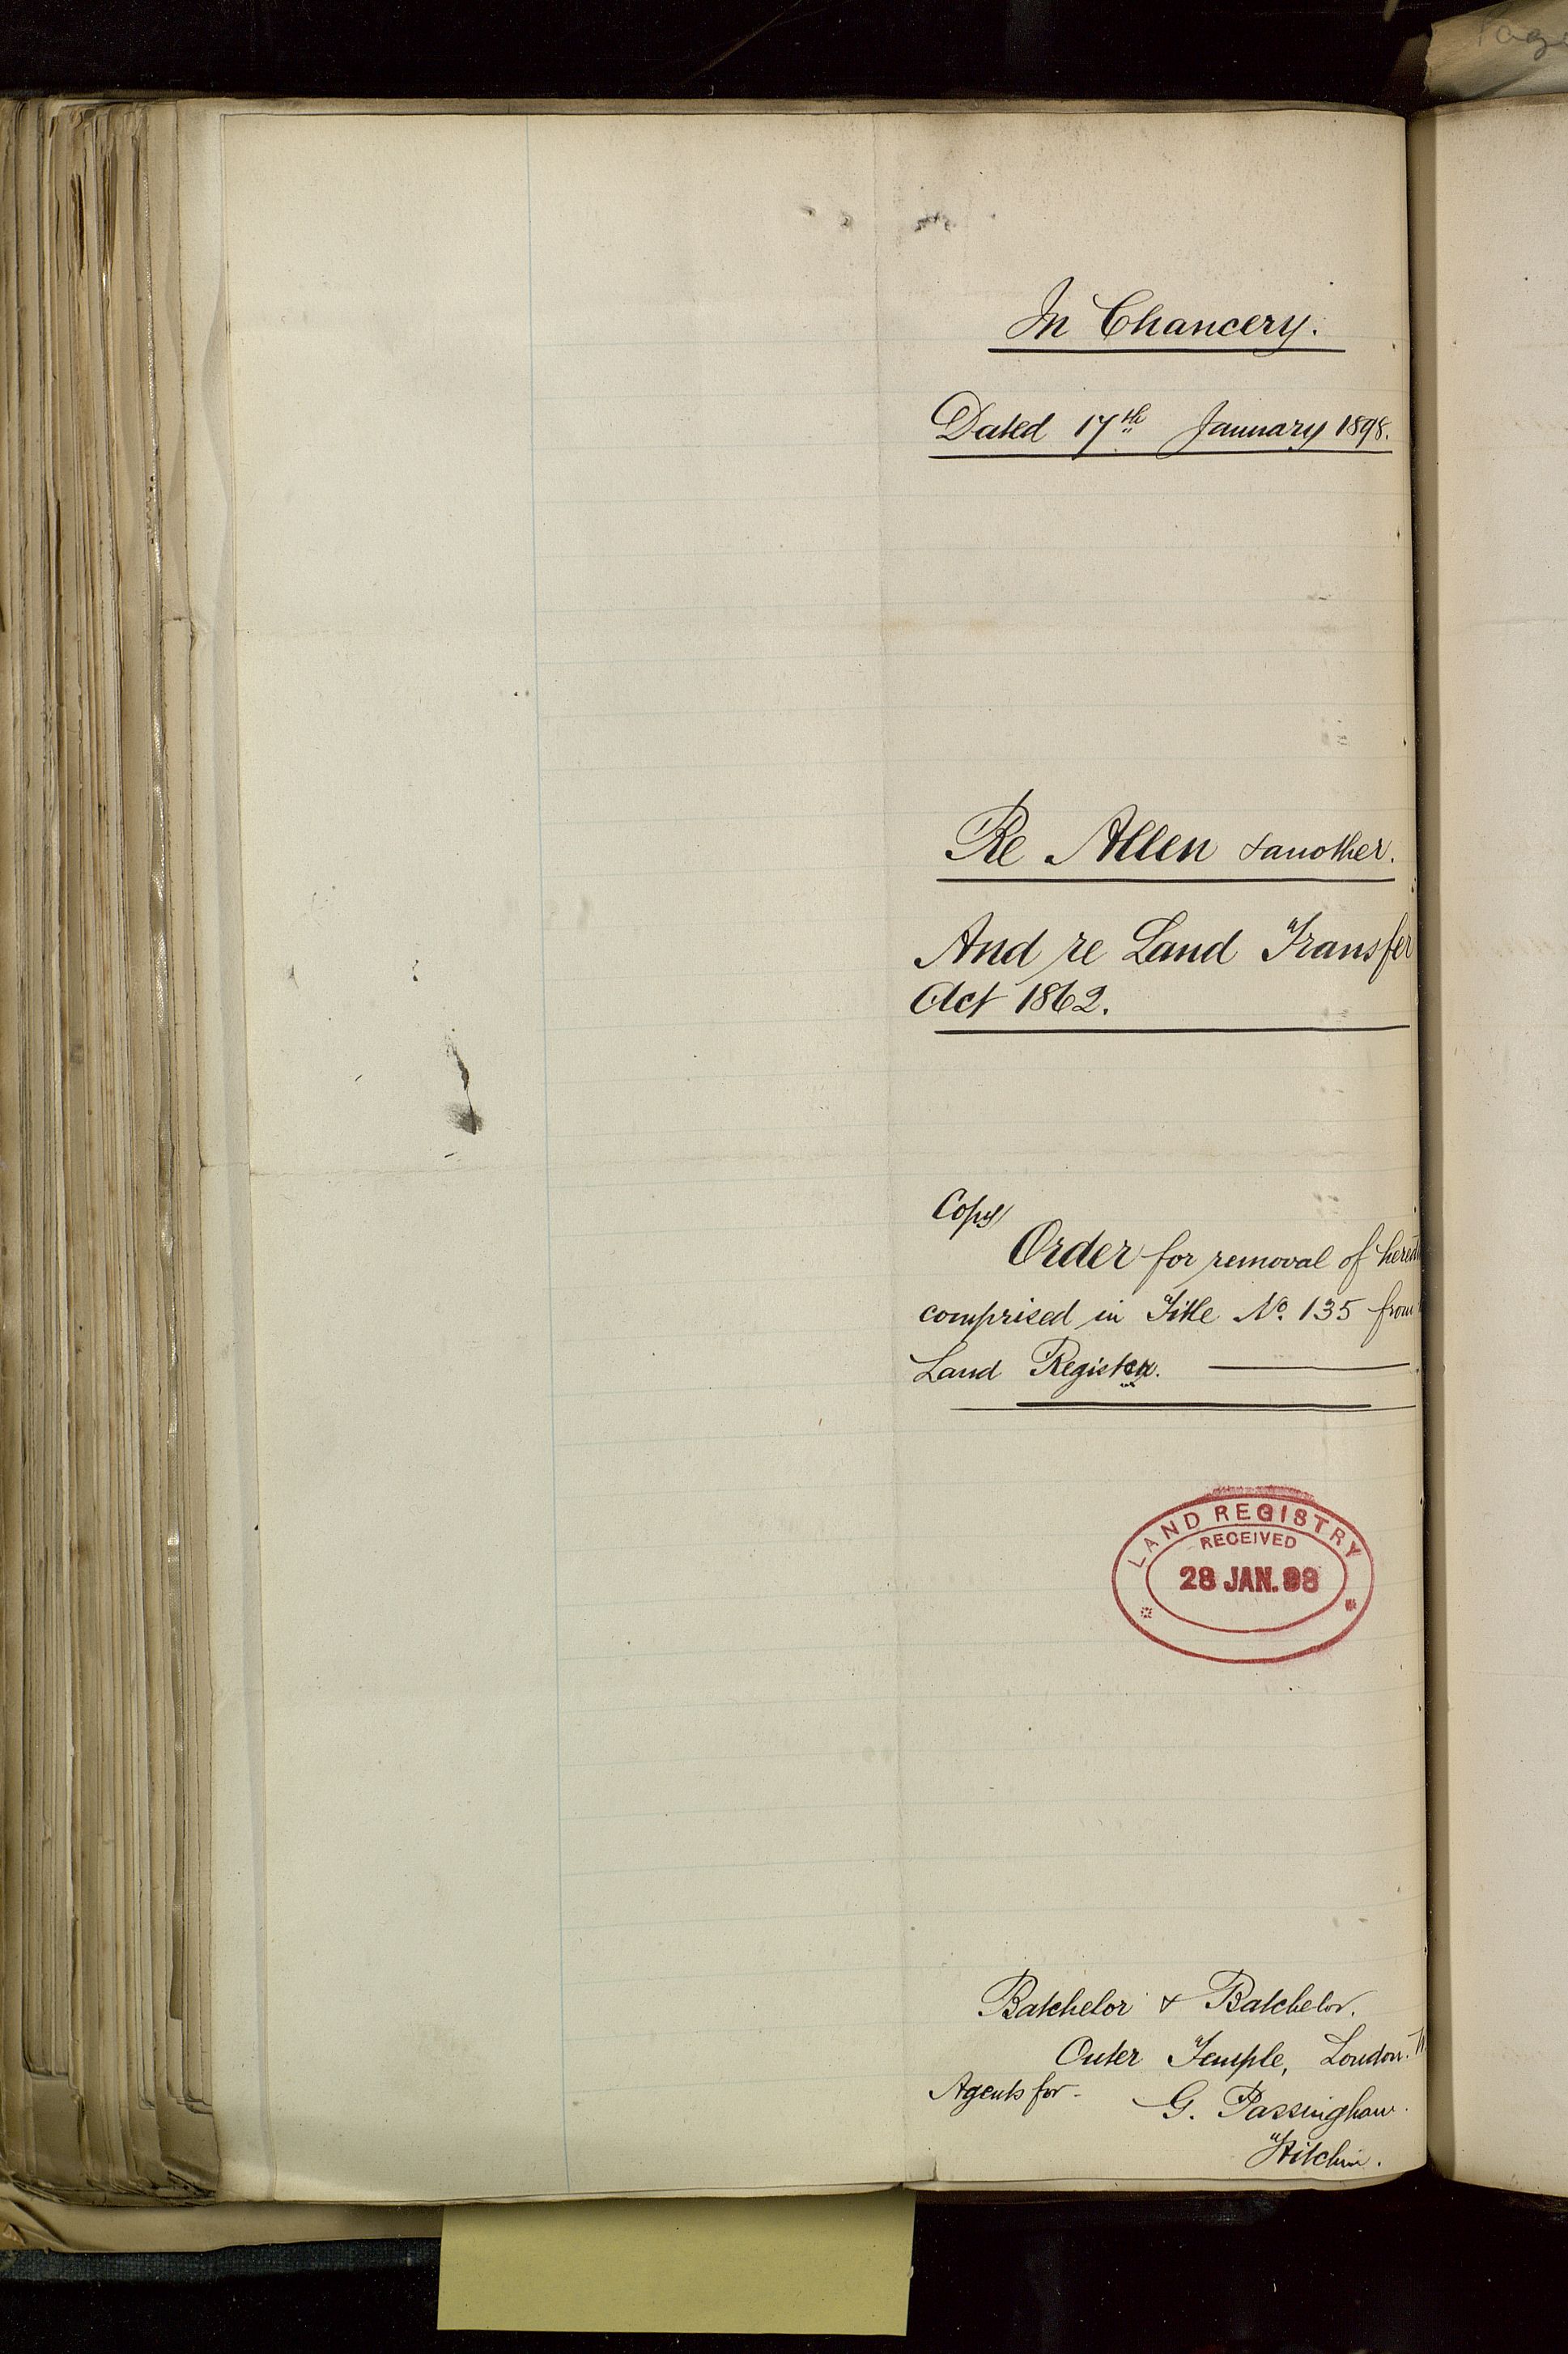 In Chancery.
Dated 17th January 1898.
Re Allen & another.
And re Land Transfer
Act 1862.
Copy
Order for removal of
comprised in Title No. 135 from
Land Register.
LAND REGISTRY
RECEIVED
28 JAN. 98
Batchelor & Batchelor.
Outer Temple, London.
Agents for
G. Passingham.
Hitchin.